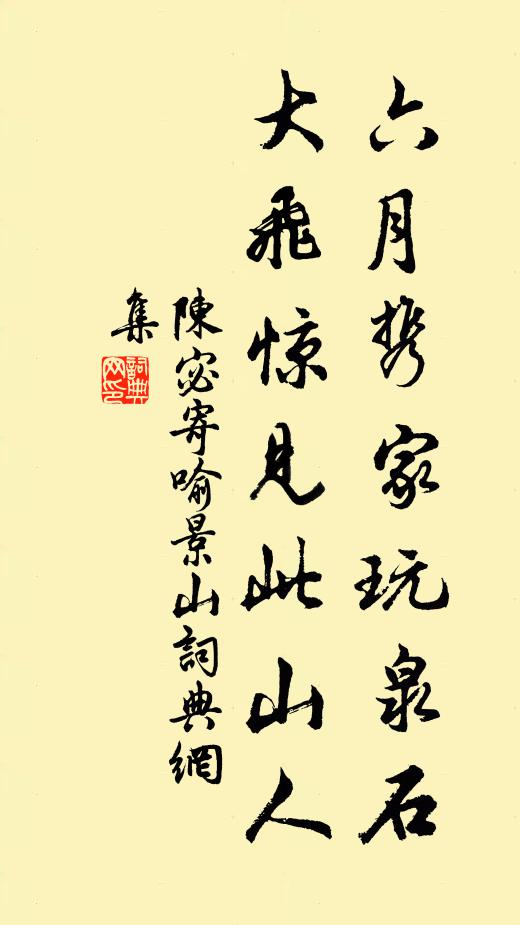 六月携家玩泉石
大飛惊見此山人
陳宓寄喻景山詞典網
集
詞典网印